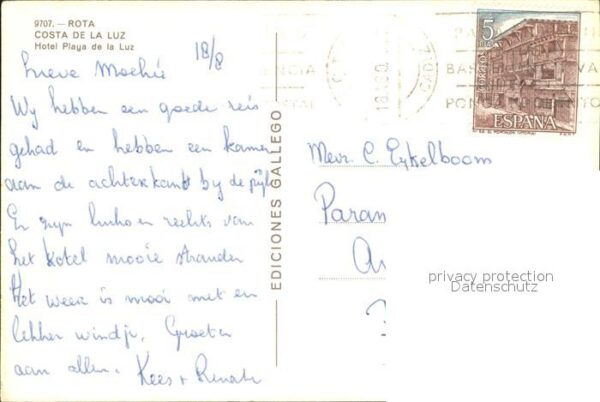 9707. — ROTA
COSTA DE LA LUZ
Hotel Playa de la Luz
18/8
Lieve Moekie
Wy hebben een goede reis
gehad en hebben een kamer
aan de achterkant by de
Er zyn links en rechts van
het hotel mooie stranden
Het weer is mooi met en
lekker windje. Groeten
aan allen. Kees + Renate
EDICIONES GALLEGO
5
CORREOS
ESPAÑA
CADIZ
Mevr. C. Eykelboom
Param
privacy protection
Datenschutz